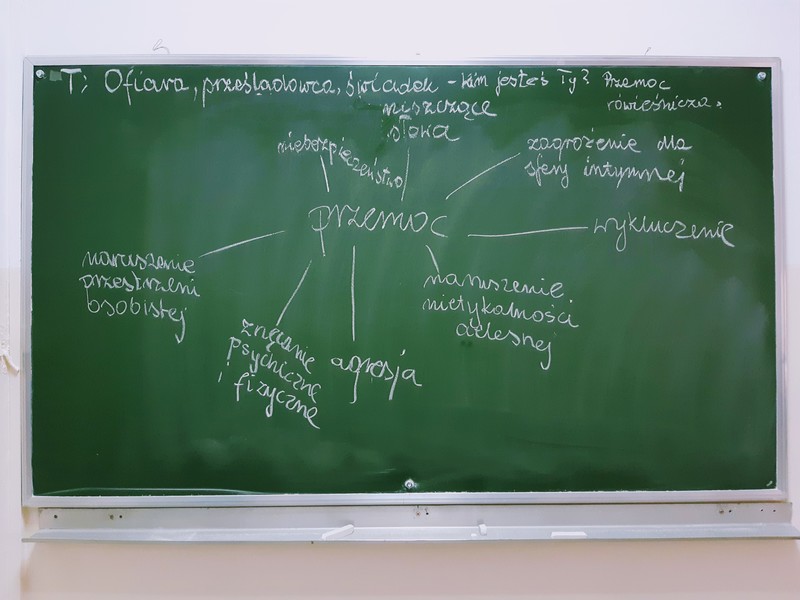 T: Ofiara, prześladowca, świadek - kim jesteś Ty? Przemoc
rówieśnicza.
niszczące
słowa
niebezpieczeństwo
zagrożenie dla
sfery intymnej
przemoc
wykluczenie
naruszenie
przestrzeni
osobistej
naruszenie
nietykalności
cielesnej
znęcanie
psychiczne
i fizyczne
agresja